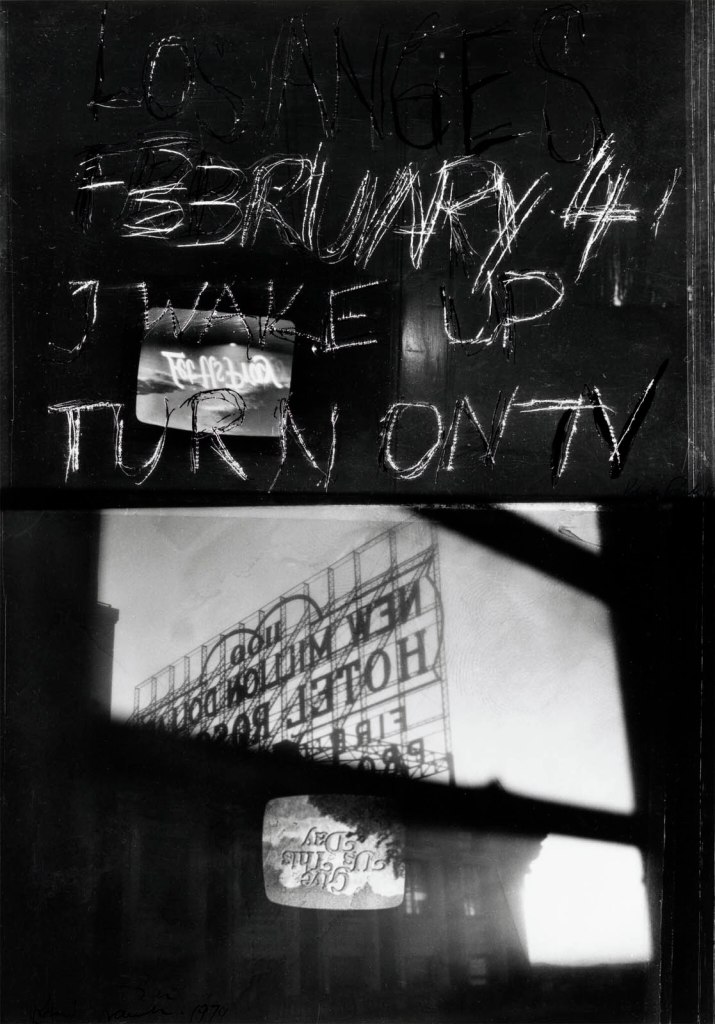 LOS ANGES
FEBRUARY 4'
I WAKE UP
TURN ON TV
NEW MILLION DOLLA
HOTEL ROS
FIR
PRO
Give
Us This
Day